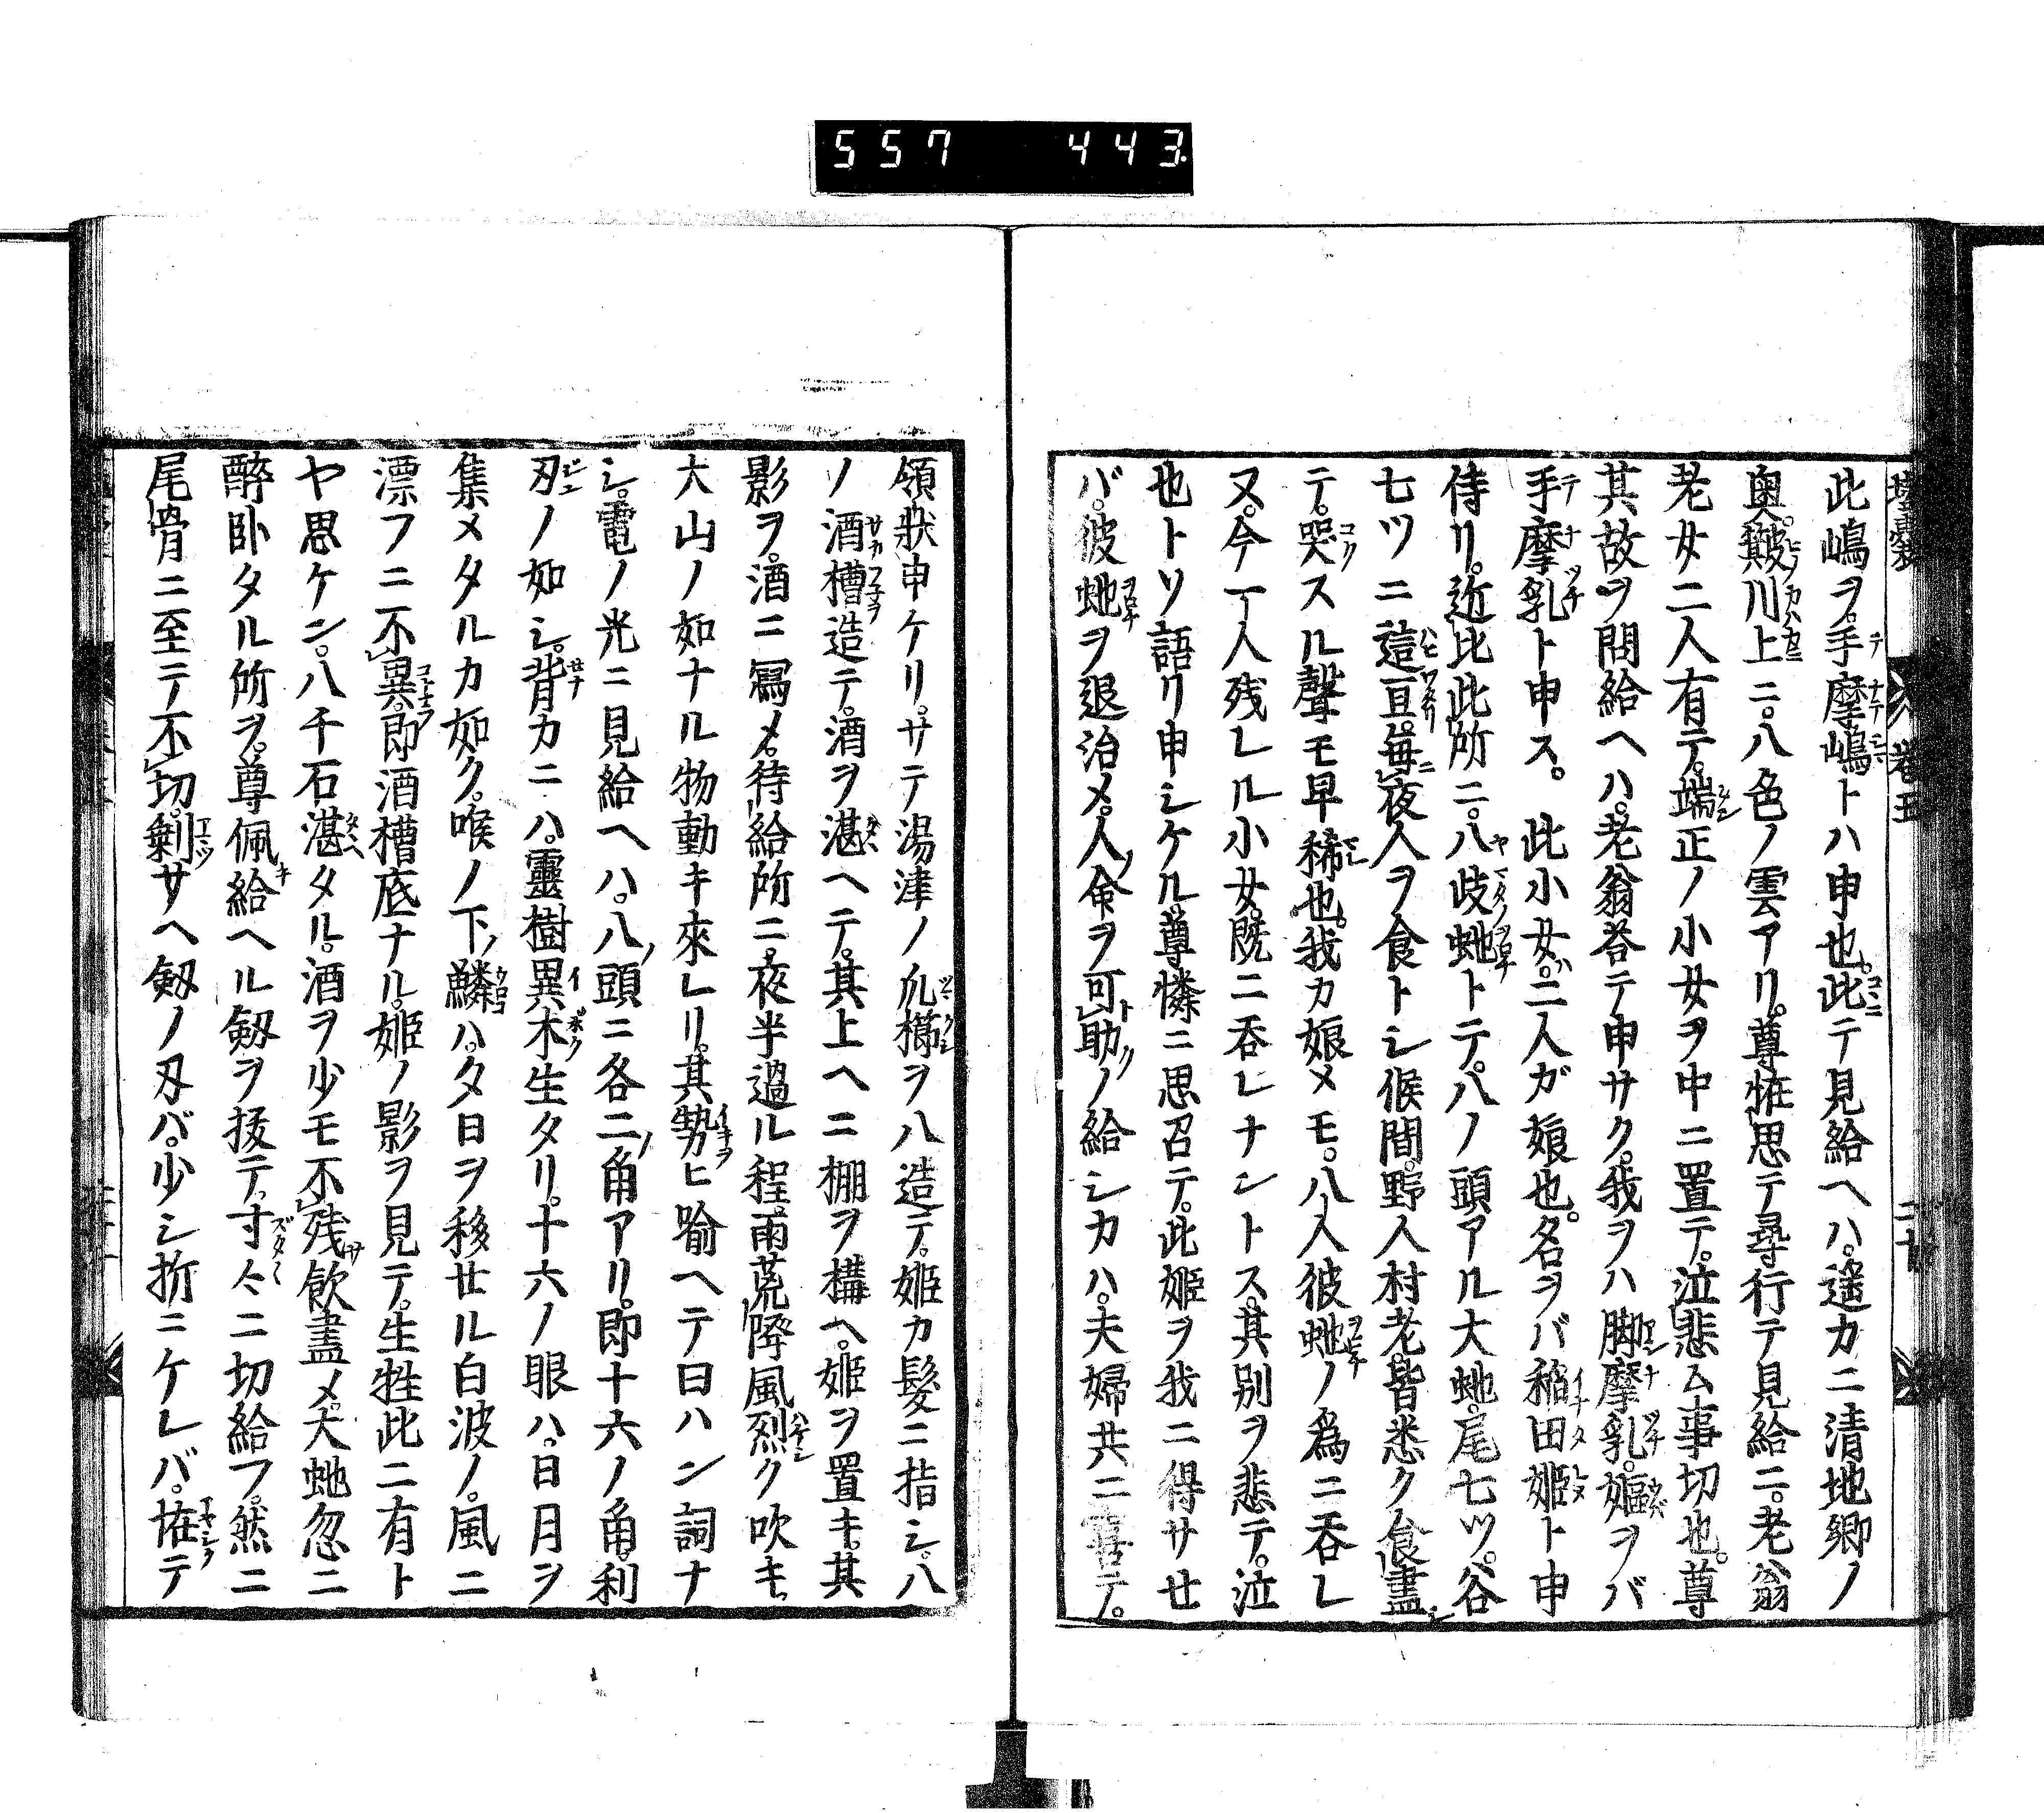 557 443
此嶋ヲ。手摩嶋トハ申也。此テ見給ヘハ。遙カニ清地郷ノ
奥。簸川上ニ。八色ノ雲アリ。尊恠思テ尋行テ見給ニ。老翁
老女二人有テ。端正ノ小女ヲ中ニ置テ。泣悲ム事切也。尊
其故ヲ問給ヘハ。老翁荅テ申サク。我ヲハ脚摩乳。嫗ヲバ
手摩乳ト申ス。此小女。二人ガ娘也。名ヲバ稲田姫ト申
侍リ。近比此所ニ。八歧虵トテ。八ノ頭アル大虵。尾七ツ。谷
七ツニ這亘。毎夜人ヲ食トシ候間。野人村老。皆悉ク食盡
テ。哭スル聲モ早稀也。我カ娘メモ。八人彼虵ノ爲ニ呑レ
又。今一人残レル小女。既ニ呑レナントス。其別ヲ悲テ。泣
也トソ語リ申シケル。尊憐ニ思召テ。此姫ヲ我ニ得サせ
バ。彼虵ヲ退治メ。人命ヲ可助ノ給シカハ。夫婦共ニ喜テ。
領狀申ケリ。サテ湯津ノ爪櫛ヲ八造テ。姫カ髮ニ指シ。八
ノ酒槽造テ。酒ヲ湛ヘテ。其上ヘニ棚ヲ構ヘ。姫ヲ置キ。其
影ヲ。酒ニ寫メ。待給所ニ。夜半過ル程。雨荒降風烈ク吹キ。
大山ノ如ナル物動キ來レリ。其勢ヒ喩ヘテ曰ハン詞ナ
シ。電ノ光ニ見給ヘハ。八頭ニ各二角アリ。即十六ノ角。利
刃ノ如シ。背カニハ。靈樹異木生タリ。十六ノ眼ハ。日月ヲ
集メタルカ如ク。喉ノ下鱗ハ。夕日ヲ移せル白波ノ。風ニ
漂フニ不異。即酒槽底ナル。姫ノ影ヲ見テ。生牲此ニ有ト
ヤ思ケン。八千石湛タル。酒ヲ少モ不残飲盡メ。大虵忽ニ
醉卧タル所ヲ。尊佩給ヘル劔ヲ拔テ。寸々ニ切給フ。然ニ
尾骨ニ至テ不切。剰サヘ劔ノ刃バ。少シ折ニケレバ。恠テ